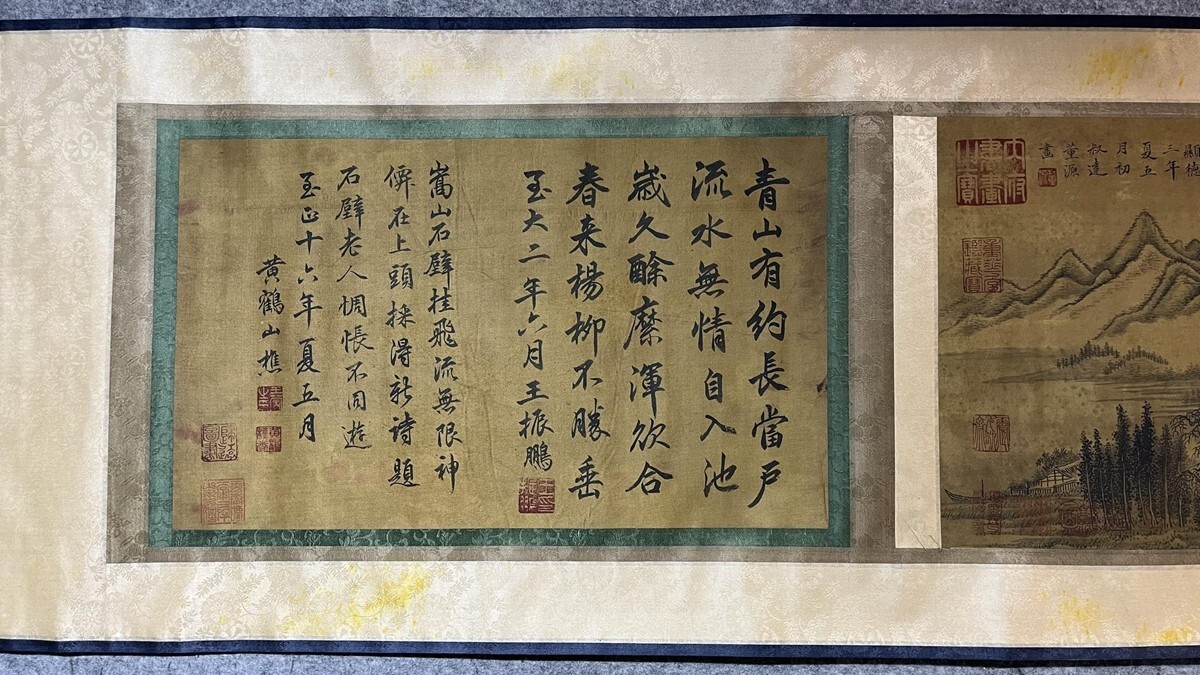 顯德
三年
夏五
月初
叔達
董源
畫
青山有約長當戶
流水無情自入池
歲久酴縻渾欲合
春来楊柳不勝垂
至大二年六月王振鵬
嵩山石壁挂飛流無限神
僊在上頭採得新詩題
石壁老人惆悵不同遊
至正十六年夏五月
黄鶴山樵